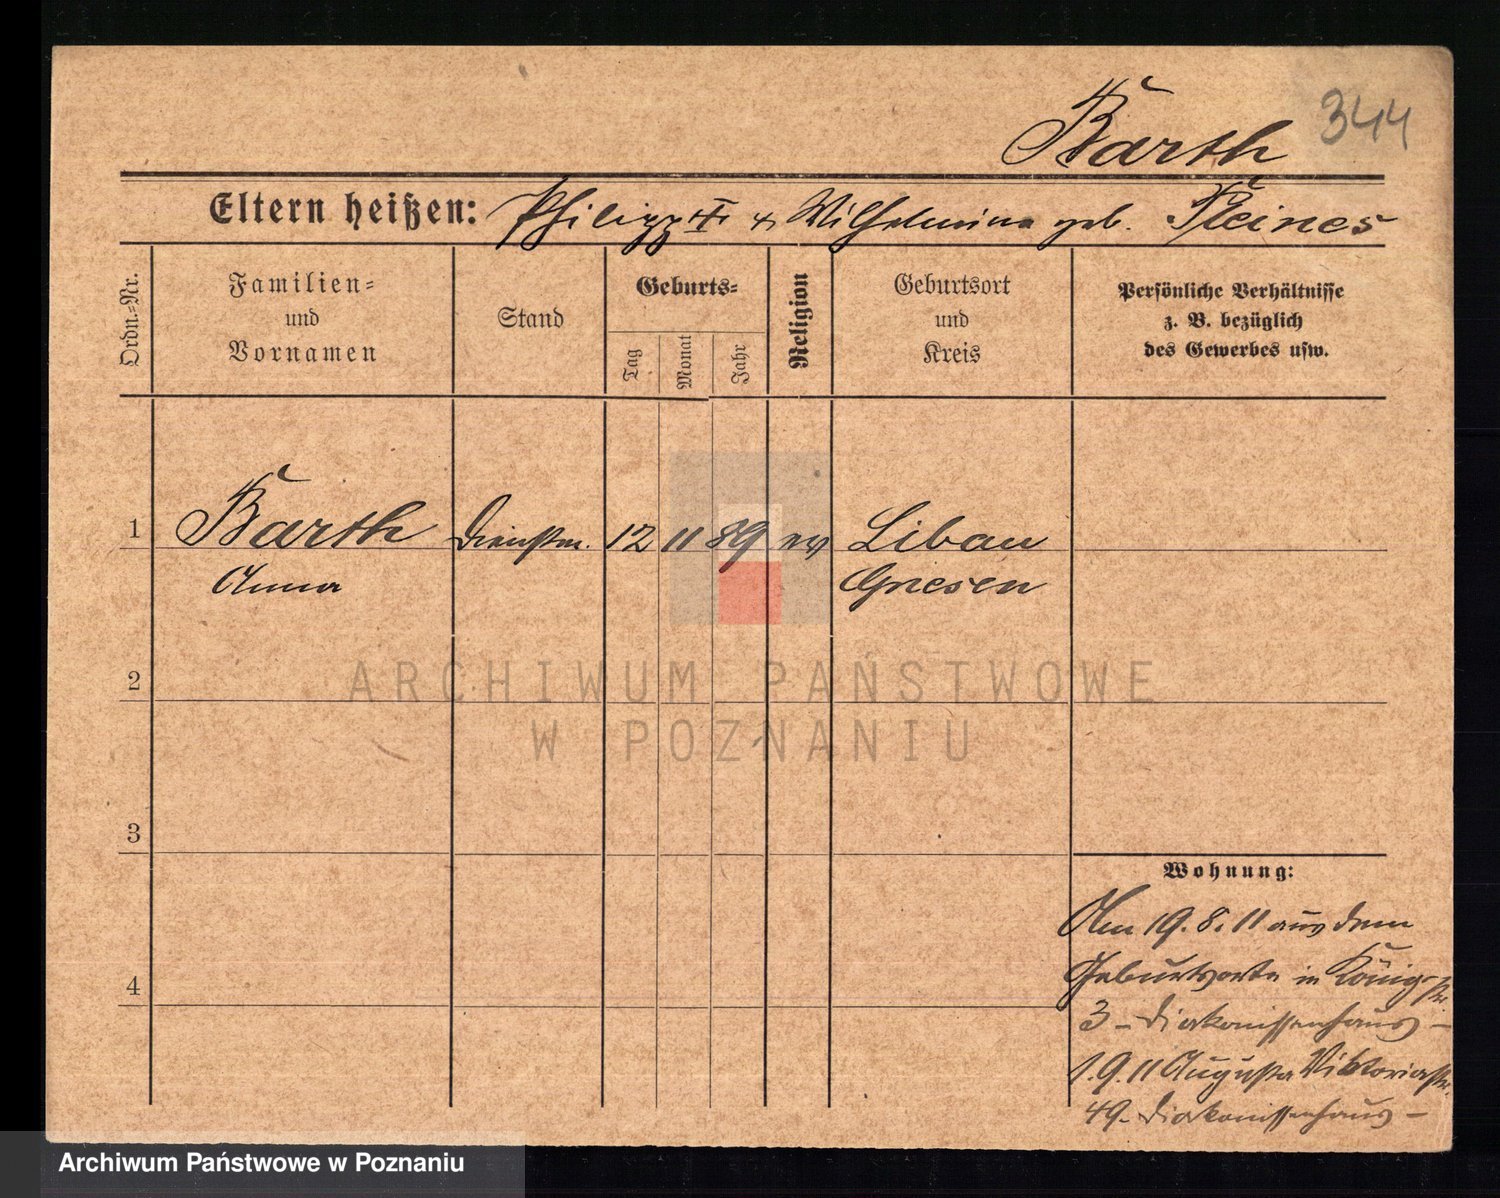 344
Barth
Eltern heißen: Philipp † & Wilhelmine geb. Pleines
Ordn.-Nr.
Familien-
und
Vornamen
Stand
Geburts-
Tag
Monat
Jahr
Religion
Geburtsort
und
Kreis
Persönliche Verhältnisse
z. B. bezüglich
des Gewerbes usw.
1 Barth Dienstm. 12 11 89 ev Libau
Anna Gnesen
2
3
4
Wohnung:
Am 19.8.11 aus dem
Geburtsorte in Königstr
3 – Diakonissenhaus –
1.9.11 Augusta Viktoriastr.
49. Diakonissenhaus –
ARCHIWUM PAŃSTWOWE
W POZNANIU
Archiwum Państwowe w Poznaniu